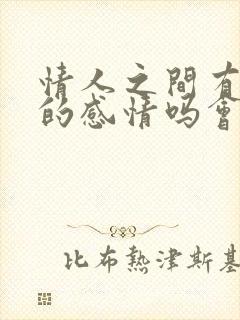 情人之間有
的感情吗會
比布熱津斯基